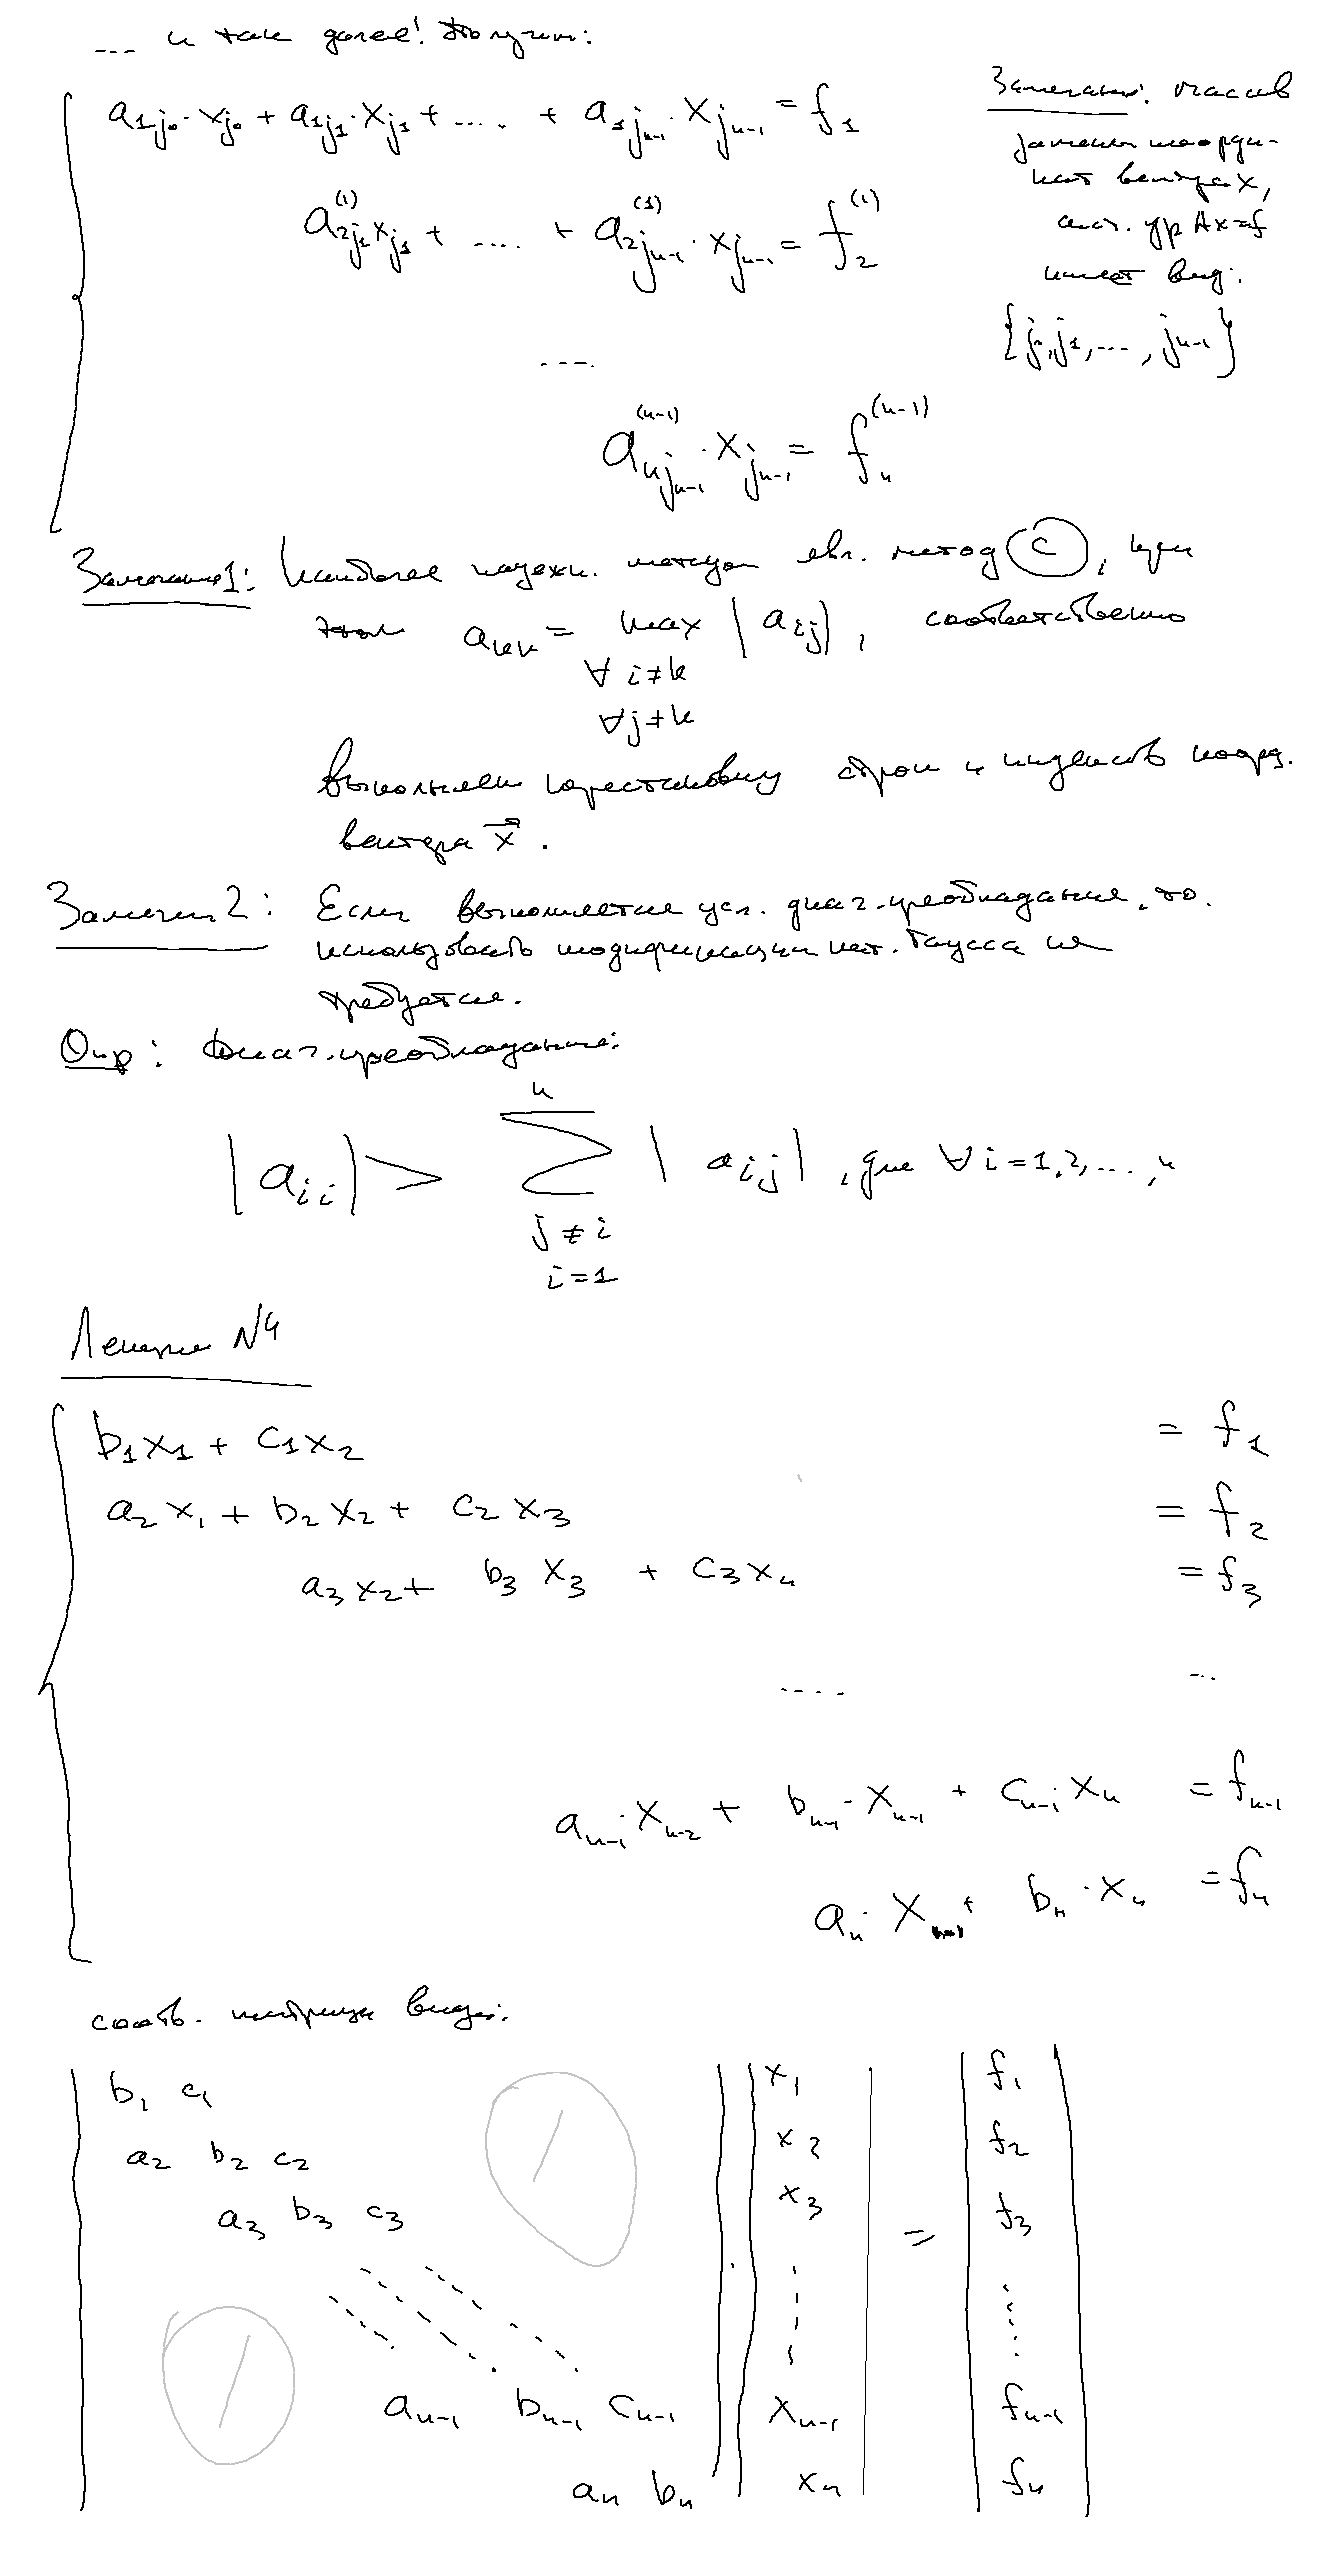 ... и так далее! Получим:
a_{1j_0}·x_{j_0} + a_{1j_1}·x_{j_1} + .... + a_{1j_{n-1}}·x_{j_{n-1}} = f_1
a_{2j_1}^{(1)} x_{j_1} + .... + a_{2j_{n-1}}^{(1)}·x_{j_{n-1}} = f_2^{(1)}
....
a_{nj_{n-1}}^{(n-1)}·x_{j_{n-1}} = f_n^{(n-1)}
Замечание: массив
замены коорди-
нат вектора x,
сист. ур Ax=f
имеет вид:
{j_0, j_1, ..., j_{n-1}}
Замечание 1: Наиболее надежн. методом явл. метод (c), при
этом a_{kk} = max |a_{ij}|, соответственно
∀ i≠k
∀ j≠k
выполняем перестановку строк и индексов коорд.
вектора \vec{x}.
Замечан 2: Если выполняется усл. диаг. преобладание, то.
использовать модификации мет. Гаусса не
требуется.
Опр: Диаг. преобладание:
n
|a_{ii}| > ∑ |a_{ij}|, для ∀ i=1,2,...,n
j ≠ i
i=1
Лекция №4
b_1x_1 + c_1x_2 = f_1
a_2x_1 + b_2x_2 + c_2x_3 = f_2
a_3x_2 + b_3x_3 + c_3x_4 = f_3
.... ...
a_{n-1}·x_{n-2} + b_{n-1}·x_{n-1} + c_{n-1}x_n = f_{n-1}
a_n·x_{n-1} + b_n·x_n = f_n
соотв. матрица вида:
b_1 c_1 x_1 f_1
a_2 b_2 c_2 x_2 f_2
a_3 b_3 c_3 x_3 = f_3
a_{n-1} b_{n-1} c_{n-1} x_{n-1} f_{n-1}
a_n b_n x_n f_n